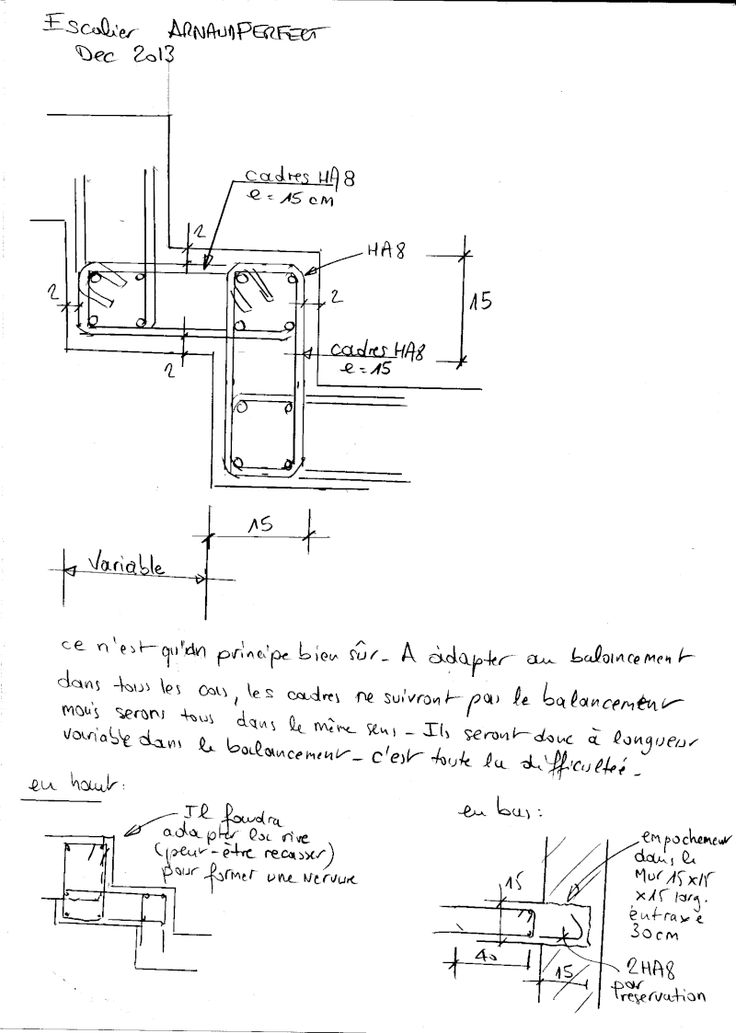 Escalier ARNAUDPERFECT
Dec 2013
cadres HA8
e = 15 cm
2
HA8
2
2
15
cadres HA8
e = 15
2
15
Variable
ce n'est qu'un principe bien sûr_ A adapter au balancement
dans tous les cas, les cadres ne suivront pas le balancement
mais serons tous dans le même sens_ Ils seront donc à longueur
variable dans le balancement_ c'est toute la difficulteé.
en haut:
Il faudra
adapter la rive
(peut-être recasser)
pour former une nervure
en bas:
empochement
dans le
Mur 15x15
x15 larg.
entraxe
30cm
15
40
15
2HA8
par
réservation